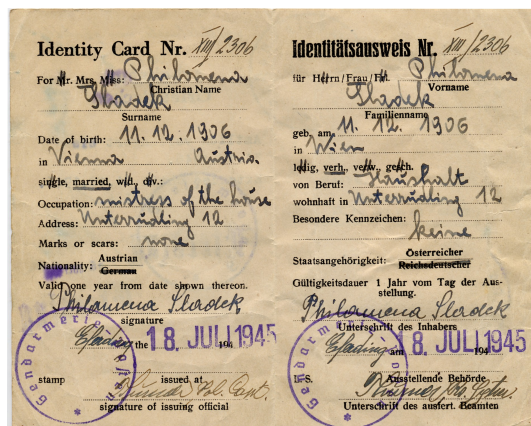 Identity Card Nr. XIII/2306
For Mr. Mrs. Miss: Philomena
Christian Name
Sladek
Surname
Date of birth: 11. 12. 1906
in Vienna Austria.
single, married, wid., div.:
Occupation: mistress of the house
Address: Unterrudling 12
Marks or scars: none
Nationality: Austrian
German
Valid one year from date shown thereon.
Philomena Sladek
signature
Eferding the 18. JULI 1945 194
stamp issued at
signature of issuing official
Gendarmerieposten
Identitätsausweis Nr. XIII/2306
für Herrn/Frau/Frl. Philomena
Vorname
Sladek
Familienname
geb. am 11. 12. 1906
in Wien
ledig, verh., verw., gesch.
von Beruf: Haushalt
wohnhaft in Unterrudling 12
Besondere Kennzeichen:
keine
Staatsangehörigkeit: Österreicher
Reichsdeutscher
Gültigkeitsdauer 1 Jahr vom Tag der Aus-
stellung.
Philomena Sladek
Unterschrift des Inhabers
Eferding am 18. JULI 1945 194
L. S. Ausstellende Behörde
Unterschrift des ausfert. Beamten
Gendarmerie